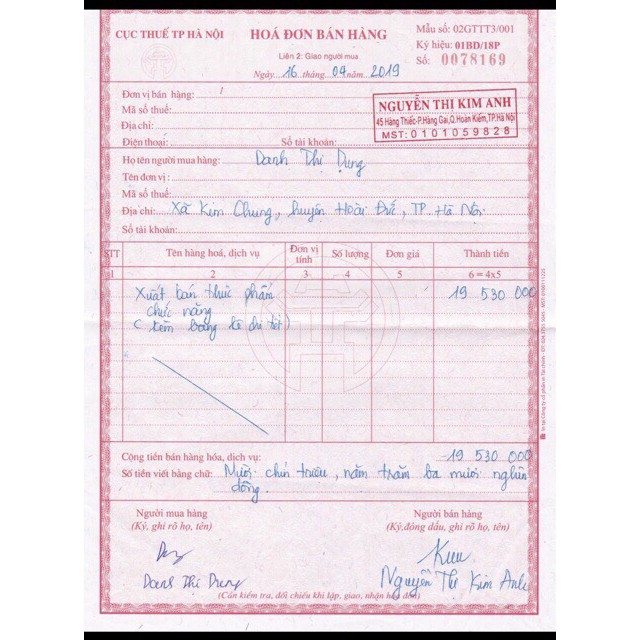 CỤC THUẾ TP HÀ NỘI
HOÁ ĐƠN BÁN HÀNG
Liên 2: Giao người mua
Ngày 16 tháng 09 năm 2019
Mẫu số: 02GTTT3/001
Ký hiệu: 01BD/18P
Số: 0078169
Đơn vị bán hàng:
Mã số thuế:
Địa chỉ:
Điện thoại: Số tài khoản:
NGUYỄN THỊ KIM ANH
45 Hàng Thiếc-P.Hàng Gai,Q.Hoàn Kiếm,TP.Hà Nội
MST: 0101059828
Họ tên người mua hàng: Danh Thị Dung
Tên đơn vị:
Mã số thuế:
Địa chỉ: Xã Kim Chung, huyện Hoài Đức, TP. Hà Nội
Số tài khoản:
STT Tên hàng hoá, dịch vụ Đơn vị tính Số lượng Đơn giá Thành tiền
1 2 3 4 5 6 = 4x5
Xuất bán thực phẩm 19 530 000
chức năng
( kèm bảng kê chi tiết )
Cộng tiền bán hàng hóa, dịch vụ: 19 530 000
Số tiền viết bằng chữ: Mười chín triệu, năm trăm ba mươi nghìn
đồng.
Người mua hàng
(Ký, ghi rõ họ, tên)
Người bán hàng
(Ký,đóng dấu, ghi rõ họ, tên)
Danh Thị Dung
Nguyễn Thị Kim Anh
(Cần kiểm tra, đối chiếu khi lập, giao, nhận hóa đơn)